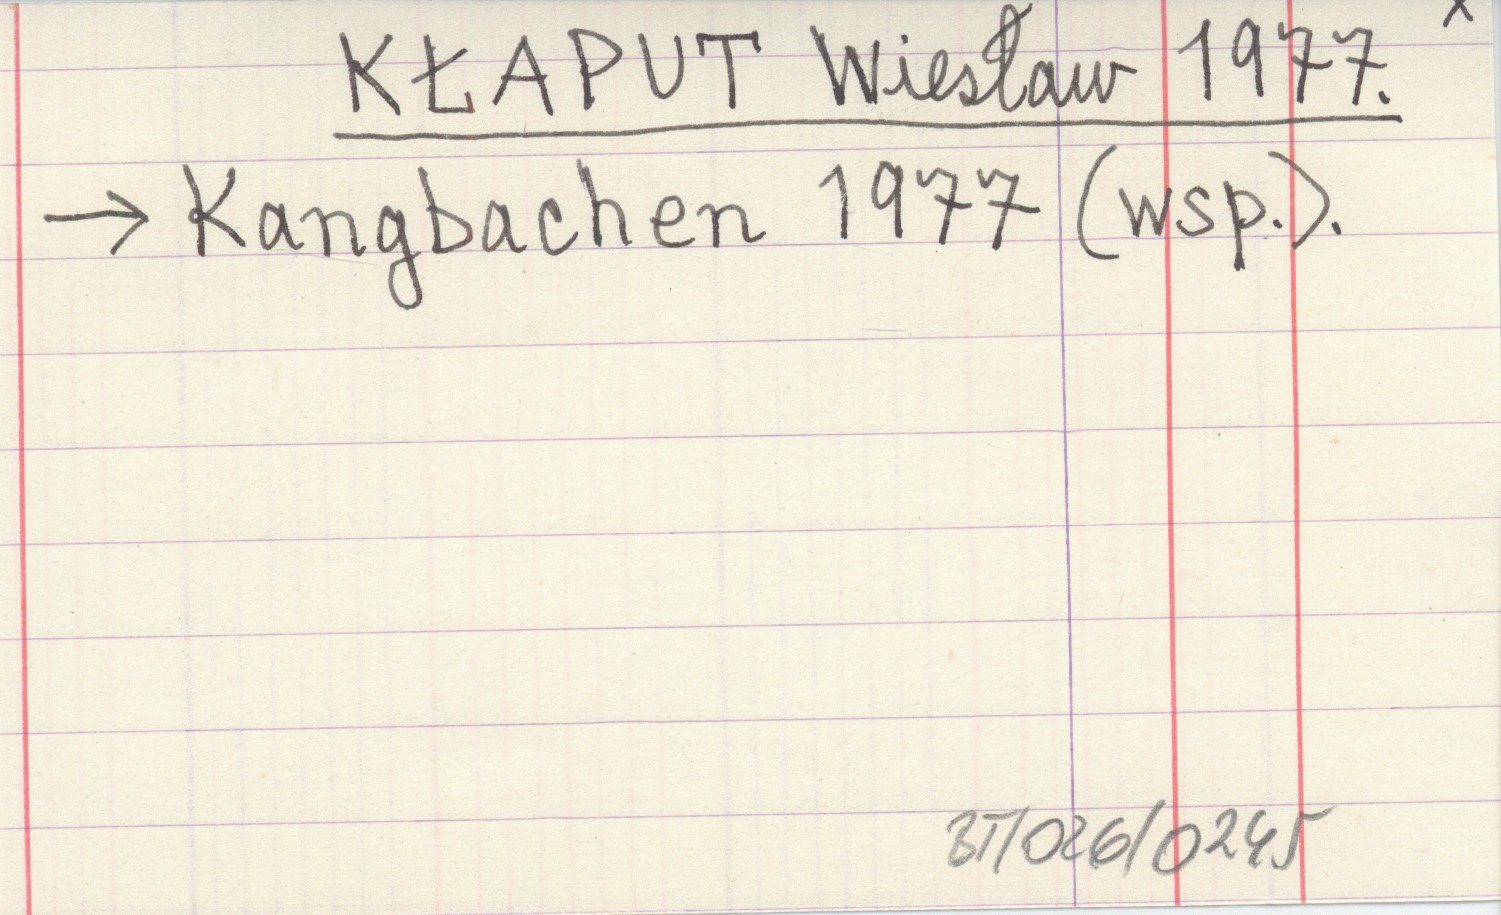 x
KŁAPUT Wiesław 1977.
→ Kangbachen 1977 (wsp.).
BT/026/0245